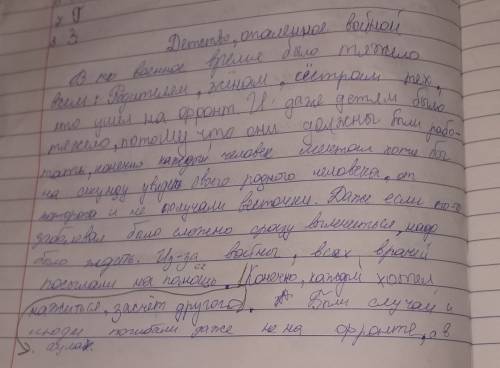 Г
3
Детство, опаленное войной
В то военное время было тяжело
всем: Родителям, жёнам, сёстрам тех,
кто ушёл на фронт. И даже детям было
тяжело, потому что они должны были рабо-
тать, конечно каждый человек мечтал хотя бы
на секунду увидеть своего родного человека, от
которого и не получали весточки. Даже если кто-то
заболевал было сложно сразу вылечиться, надо
было ждать. Из-за войны, всех врачей
посылали на помощь. Конечно, каждый хотел
нажиться, засчёт другого. Были случаи и
люди погибали даже не на фронте, а в